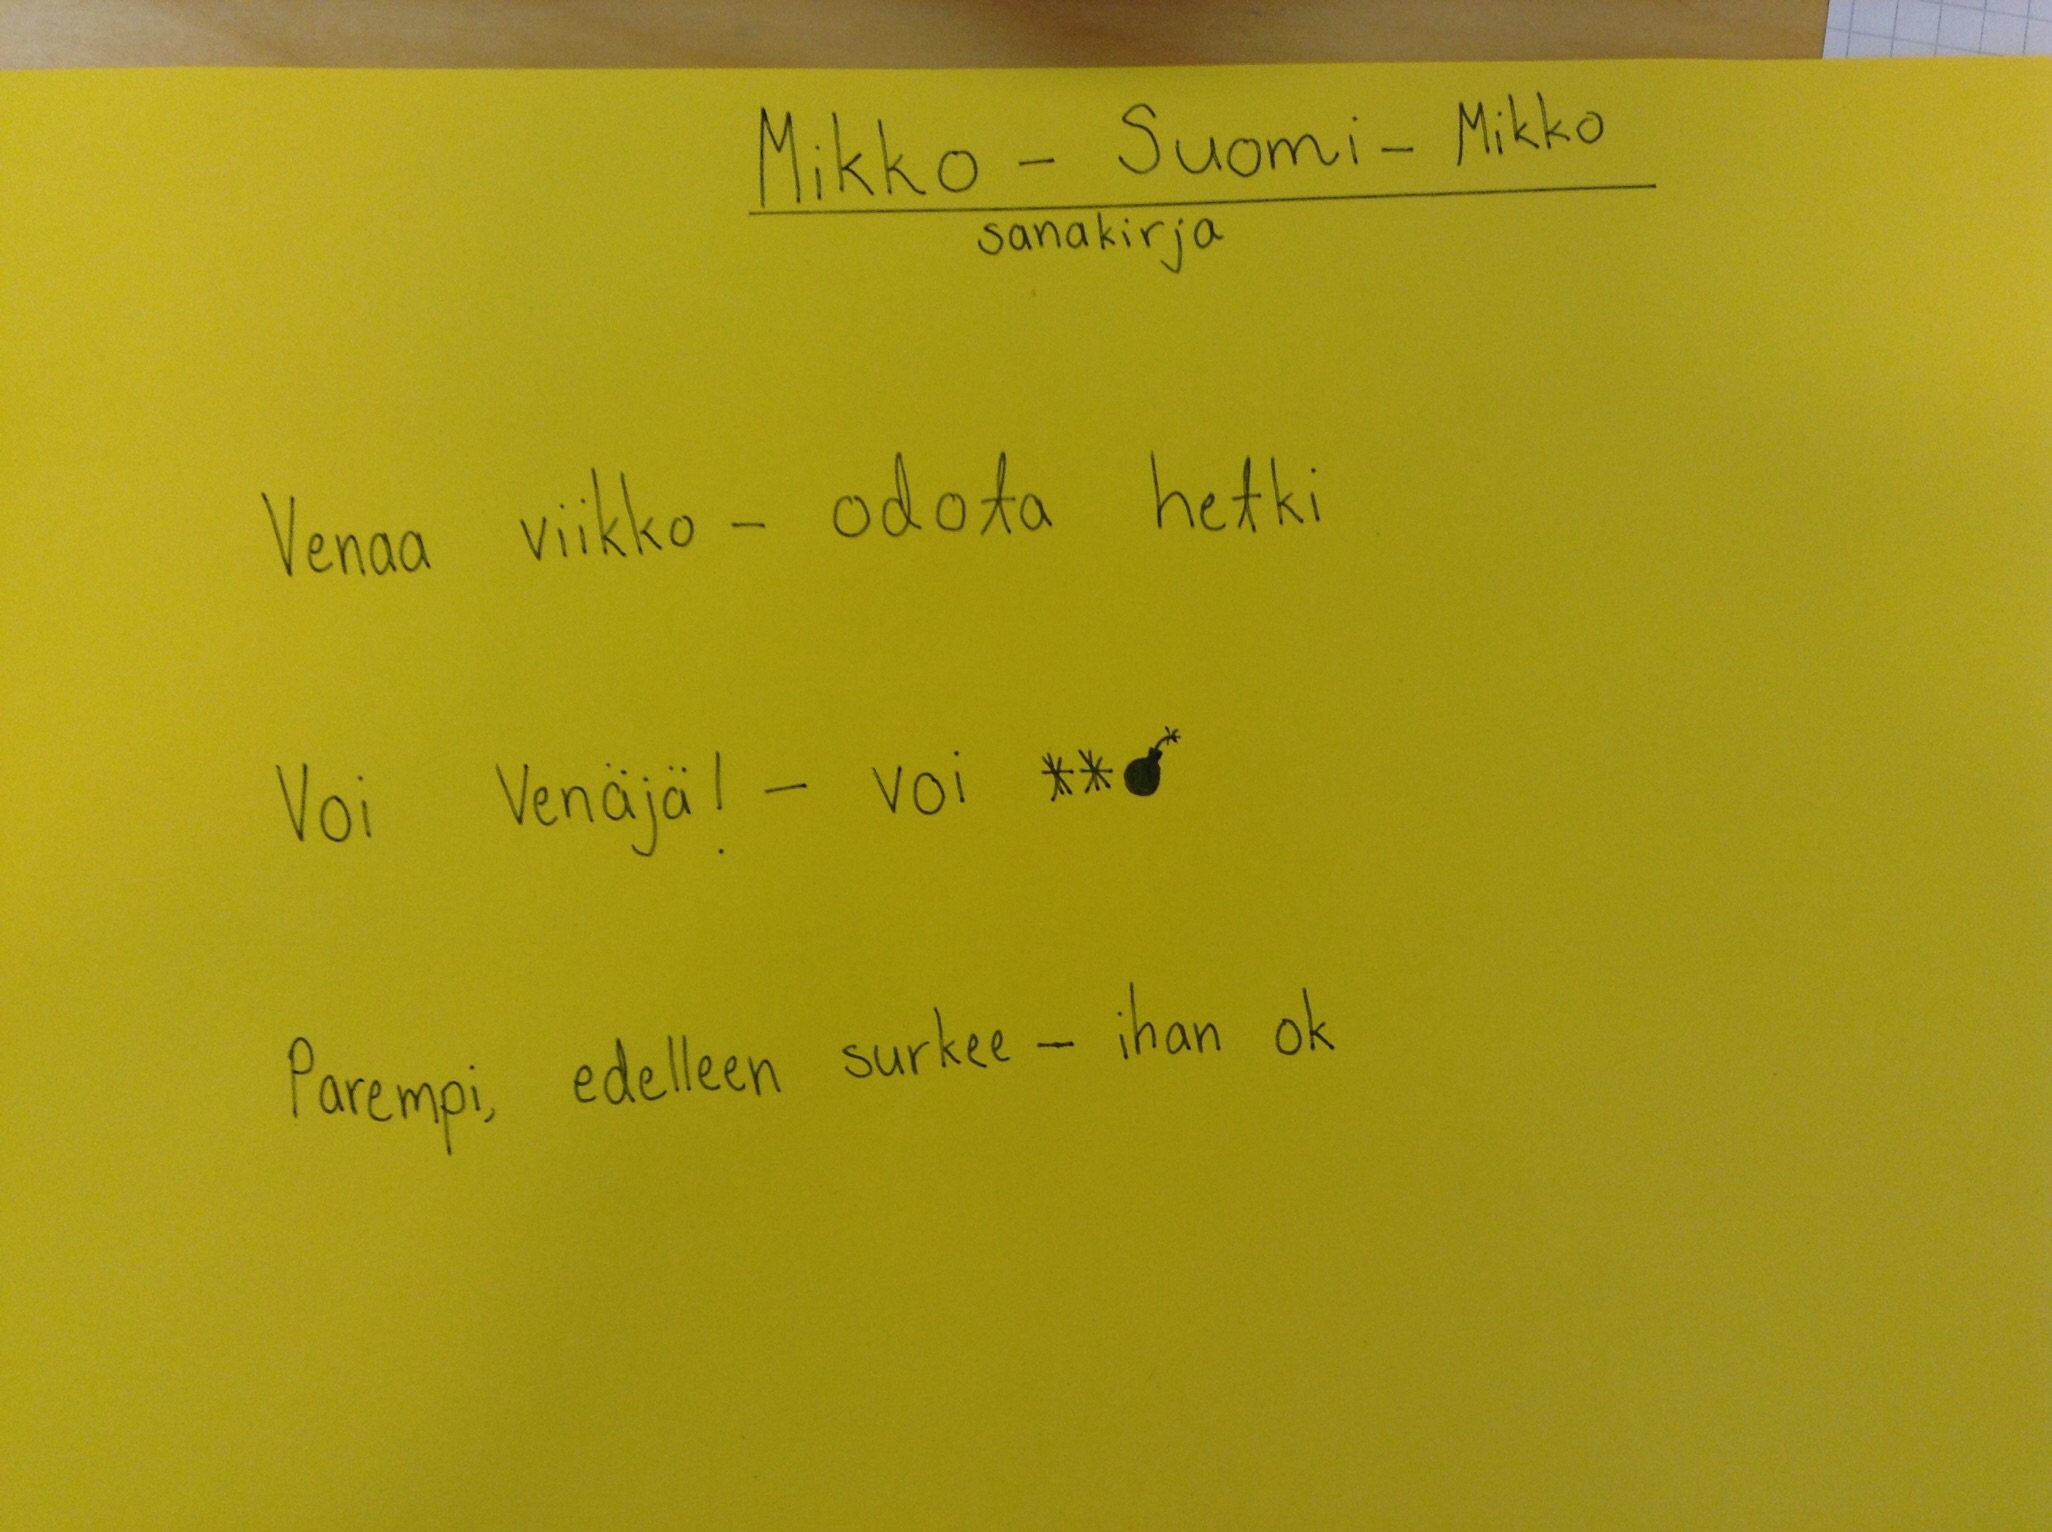 Mikko - Suomi - Mikko
sanakirja
Venaa viikko - odota hetki
Voi Venäjä! - voi **💣
Parempi, edelleen surkee - ihan ok